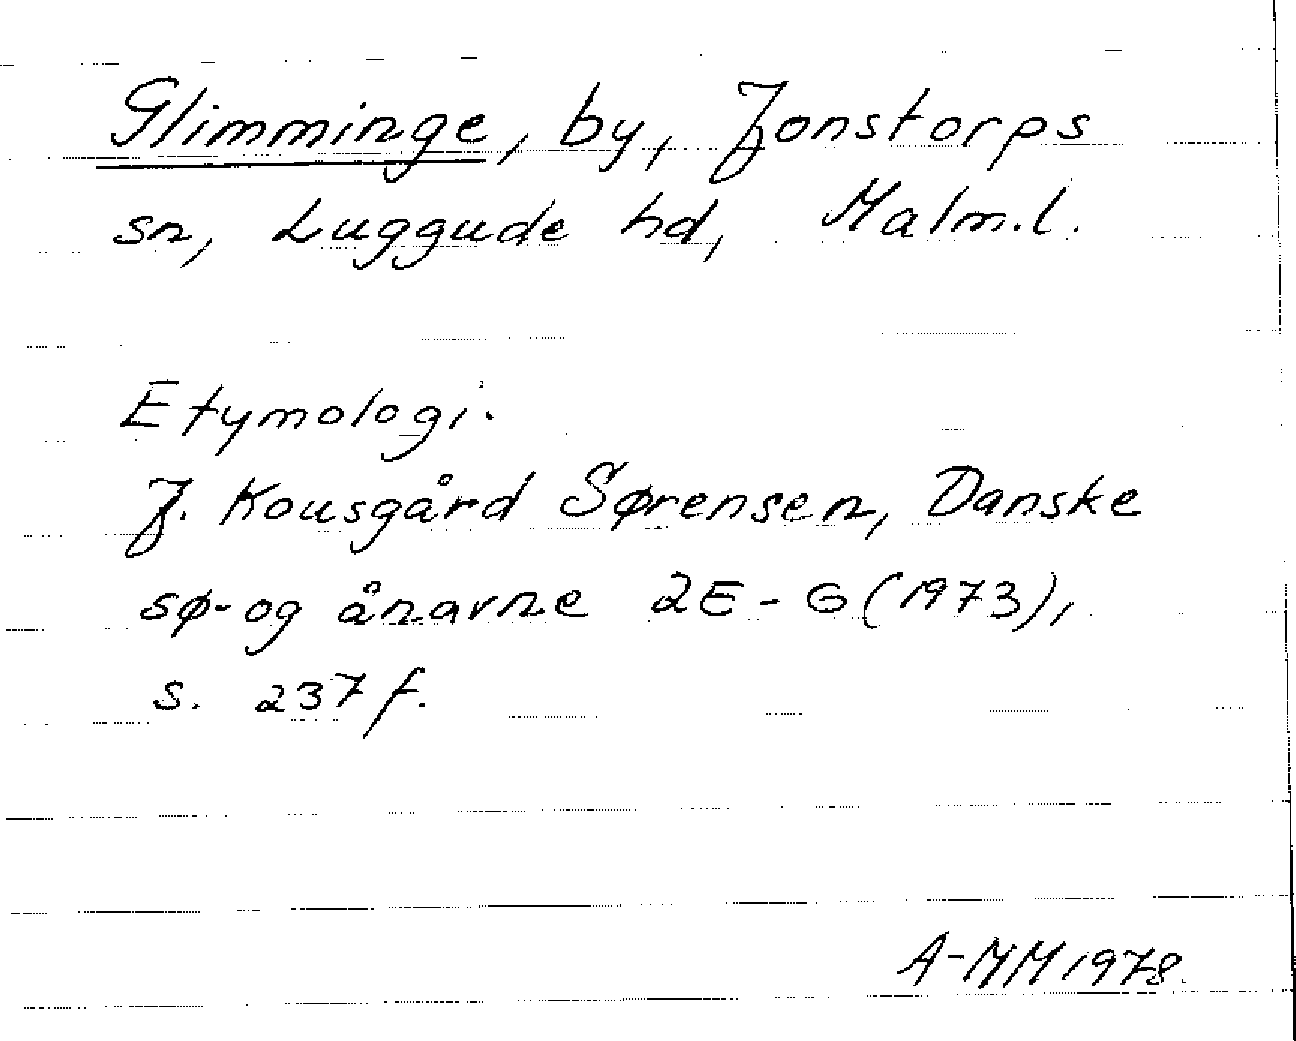 Glimminge, by, Jonstorps
sn, Luggude hd, Malm.l.
Etymologi.
J. Kousgård Sørensen, Danske
sø- og ånavne 2E-G (1973),
s. 237 f.
A-MM 1978.